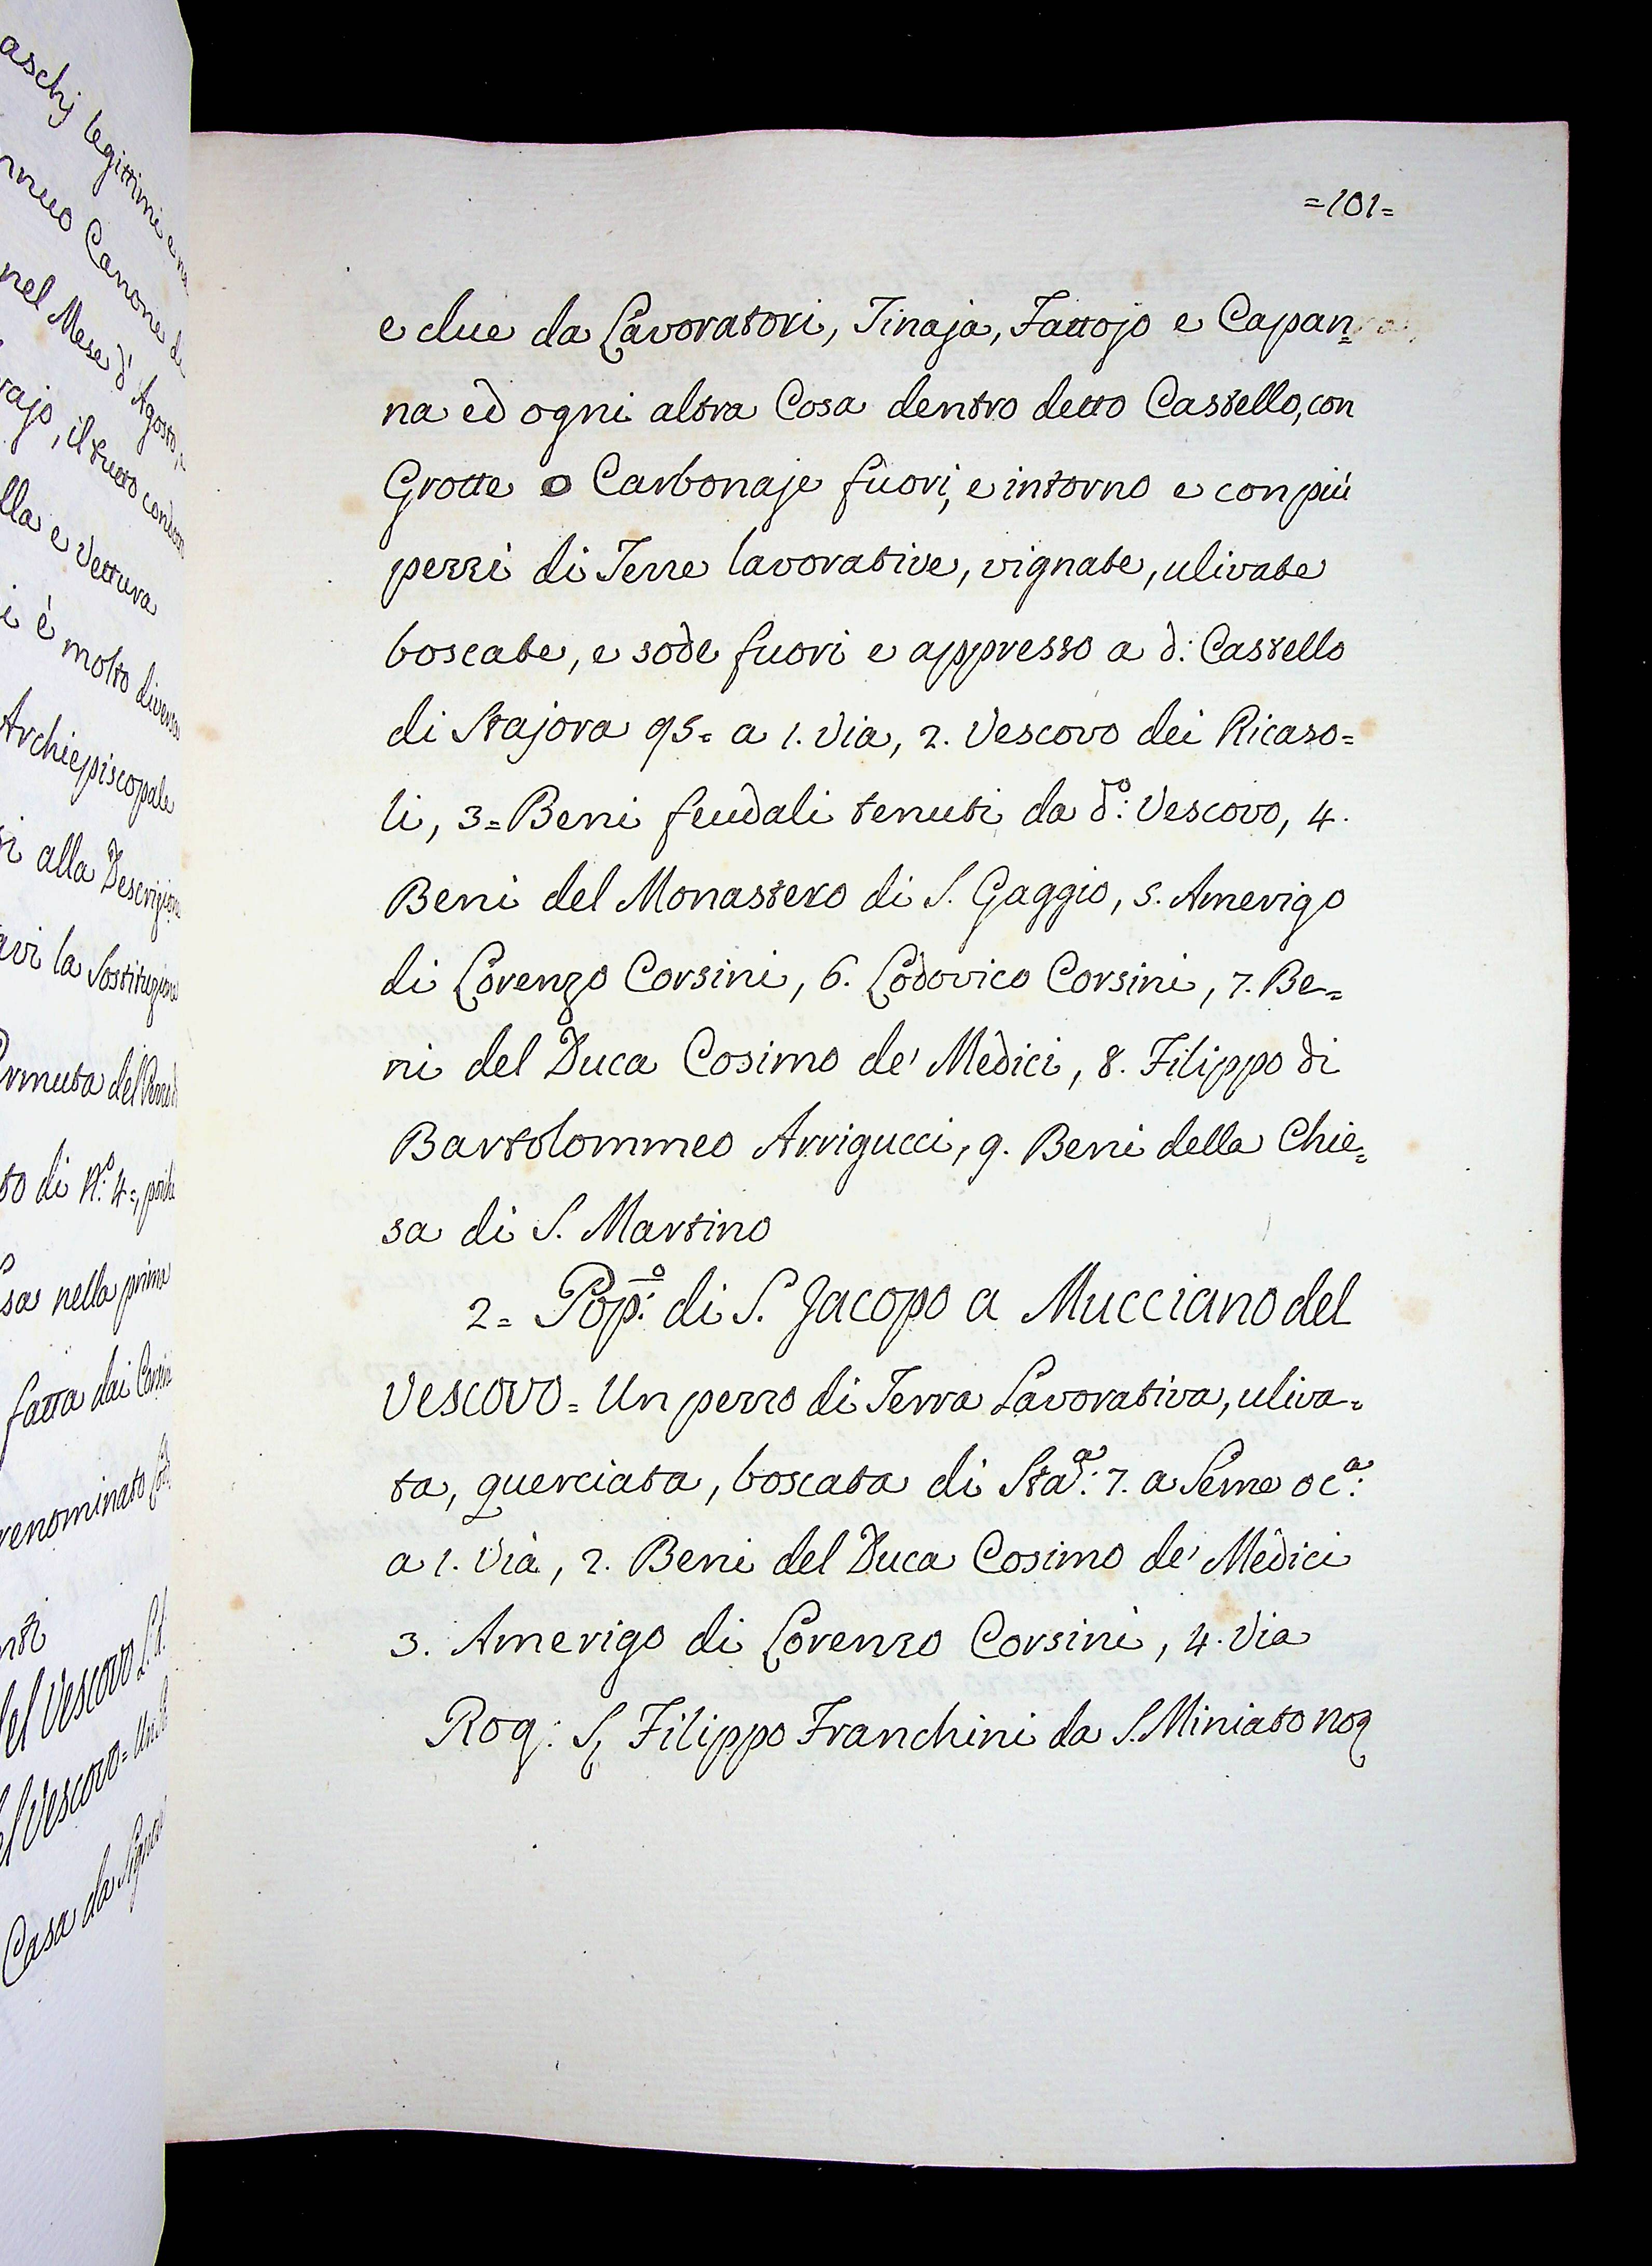 aschj legittimi e na
nnuo Canone di
nel Mese d'Agosto,
rajo, il tutto condotto
lla e Vettura
i è molto diversa
Archiepiscopale
si alla Descrizione
avi la Sostituzione
ermuta del
to di N.º 4=, poiche
sa nella prima
fatta dai Corsini
renominato
nti
del Vescovo
el Vescovo= Un
Casa da Signore
=101=
e due da Lavoratori, Tinaja, Fattojo e Capan=
na ed ogni altra Cosa dentro detto Castello, con
Grotte o Carbonaje fuori, e intorno e con più
pezzi di Terre lavorative, vignate, ulivate
boscate, e sode fuori e appresso a d: Castello
di Stajora 95= a 1. Via, 2. Vescovo dei Ricaso=
li, 3= Beni feudali tenuti da d.º: Vescovo, 4.
Beni del Monastero di S. Gaggio, 5. Amerigo
di Lorenzo Corsini, 6. Lodovico Corsini, 7. Be=
ni del Duca Cosimo de' Medici, 8. Filippo di
Bartolommeo Arrigucci, 9. Beni della Chie=
sa di S. Martino
2= Pop.º: di S. Jacopo a Mucciano del
Vescovo= Un pezzo di Terra Lavorativa, uliva=
ta, querciata, boscata di Sta.ª: 7. a Seme o c.ª:
a 1. Via, 2. Beni del Duca Cosimo de' Medici
3. Amerigo di Lorenzo Corsini, 4. Via
Rog: S. Filippo Franchini da S. Miniato no